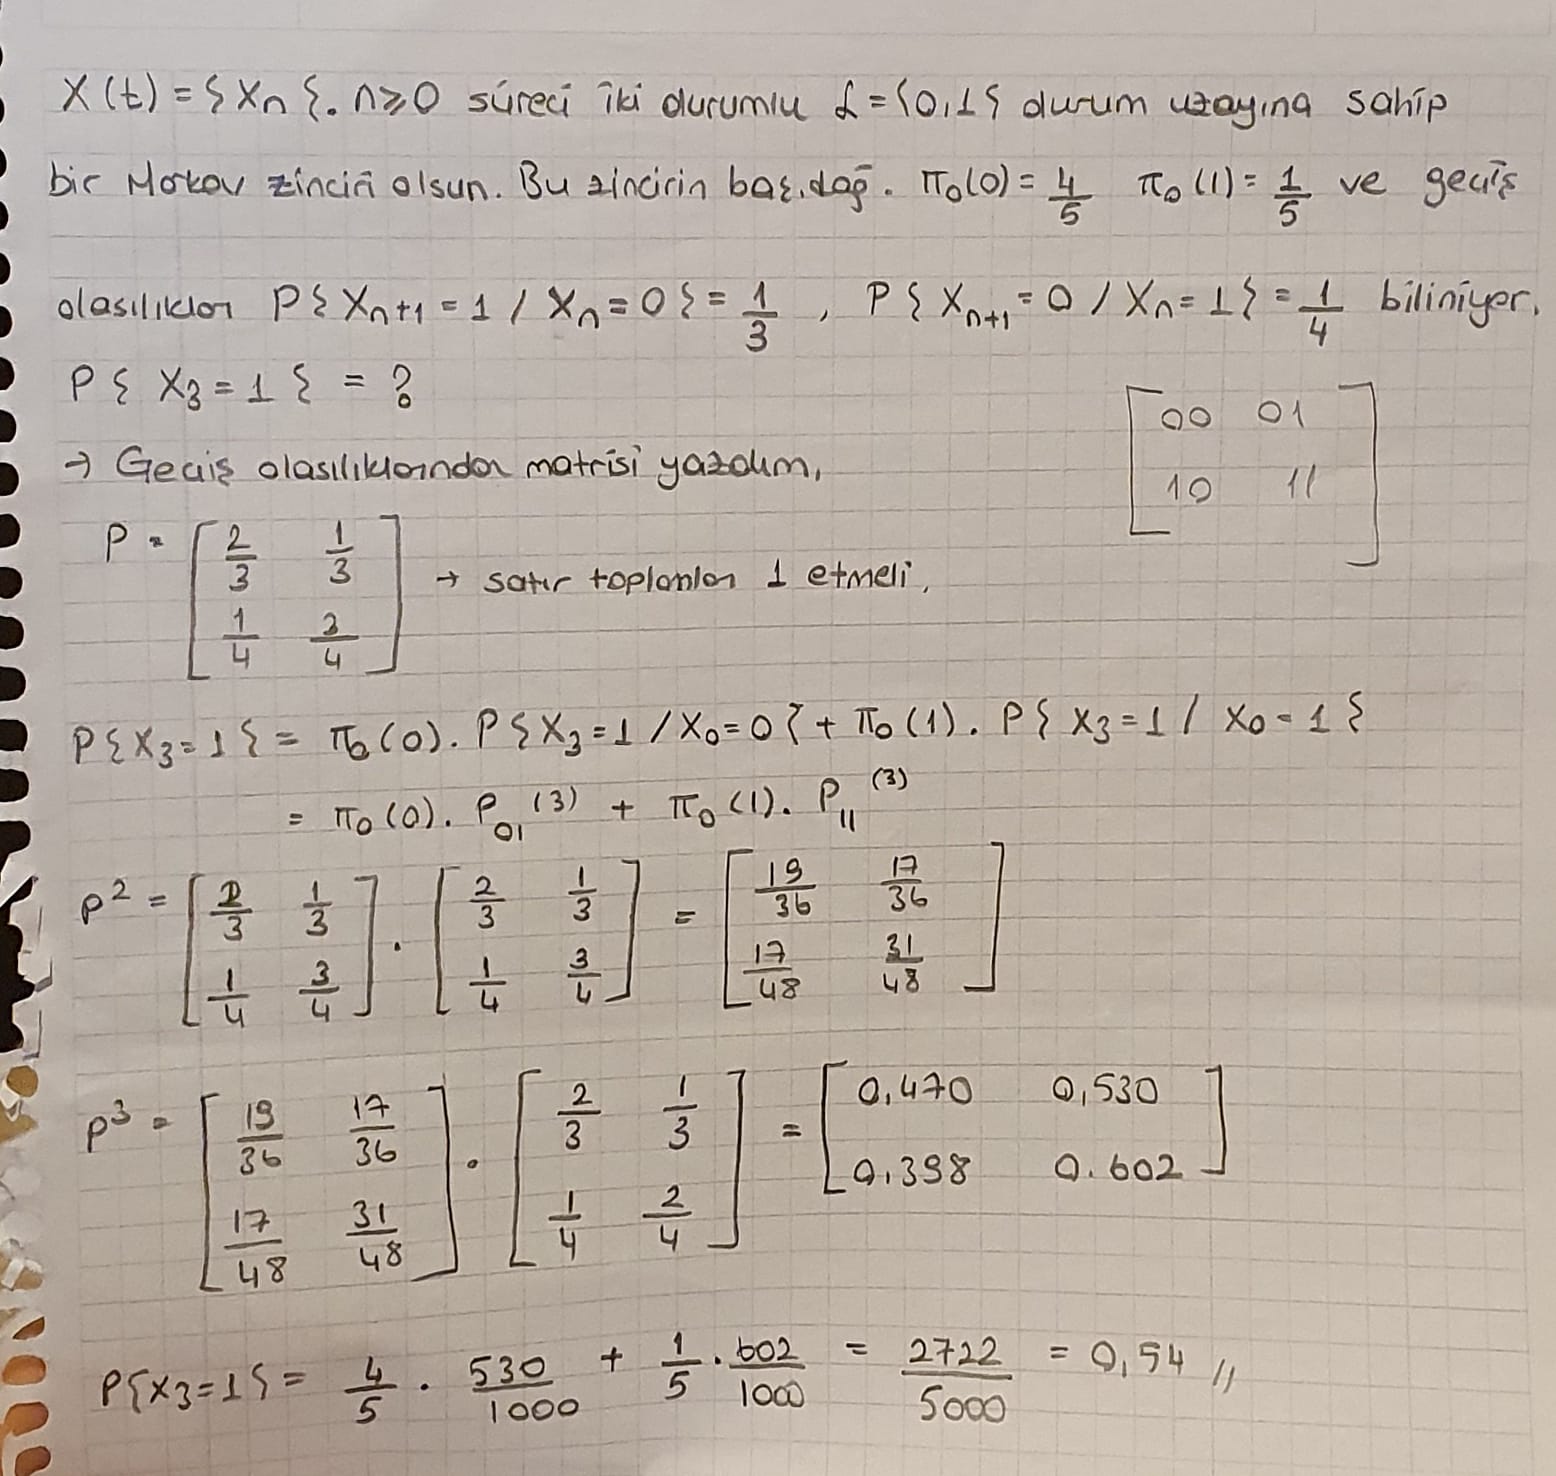 X(t) = {Xn}. n≥0 süreci iki durumlu L={0,1} durum uzayına sahip
bir Markov zinciri olsun. Bu zincirin baş.dağ. π₀(0) = 4/5 π₀(1) = 1/5 ve geçiş
olasılıkları P{Xn+1 = 1 / Xn = 0} = 1/3, P{Xn+1 = 0 / Xn = 1} = 1/4 biliniyor.
P{X₃ = 1} = ?
[00 01
10 11]
→ Geçiş olasılıklarından matrisi yazalım,
P = [2/3 1/3
1/4 3/4] → satır toplamları 1 etmeli.
P{X₃=1} = π₀(0). P{X₃=1 / X₀=0} + π₀(1). P{X₃=1 / X₀=1}
= π₀(0). P₀₁⁽³⁾ + π₀(1). P₁₁⁽³⁾
P² = [2/3 1/3 . [2/3 1/3 = [19/36 17/36
1/4 3/4] 1/4 3/4] 17/48 31/48]
P³ = [19/36 17/36 . [2/3 1/3 = [0,470 0,530
17/48 31/48] 1/4 3/4] 0,398 0.602]
P{X₃=1} = 4/5 . 530/1000 + 1/5 . 602/1000 = 2722/5000 = 0,54 //